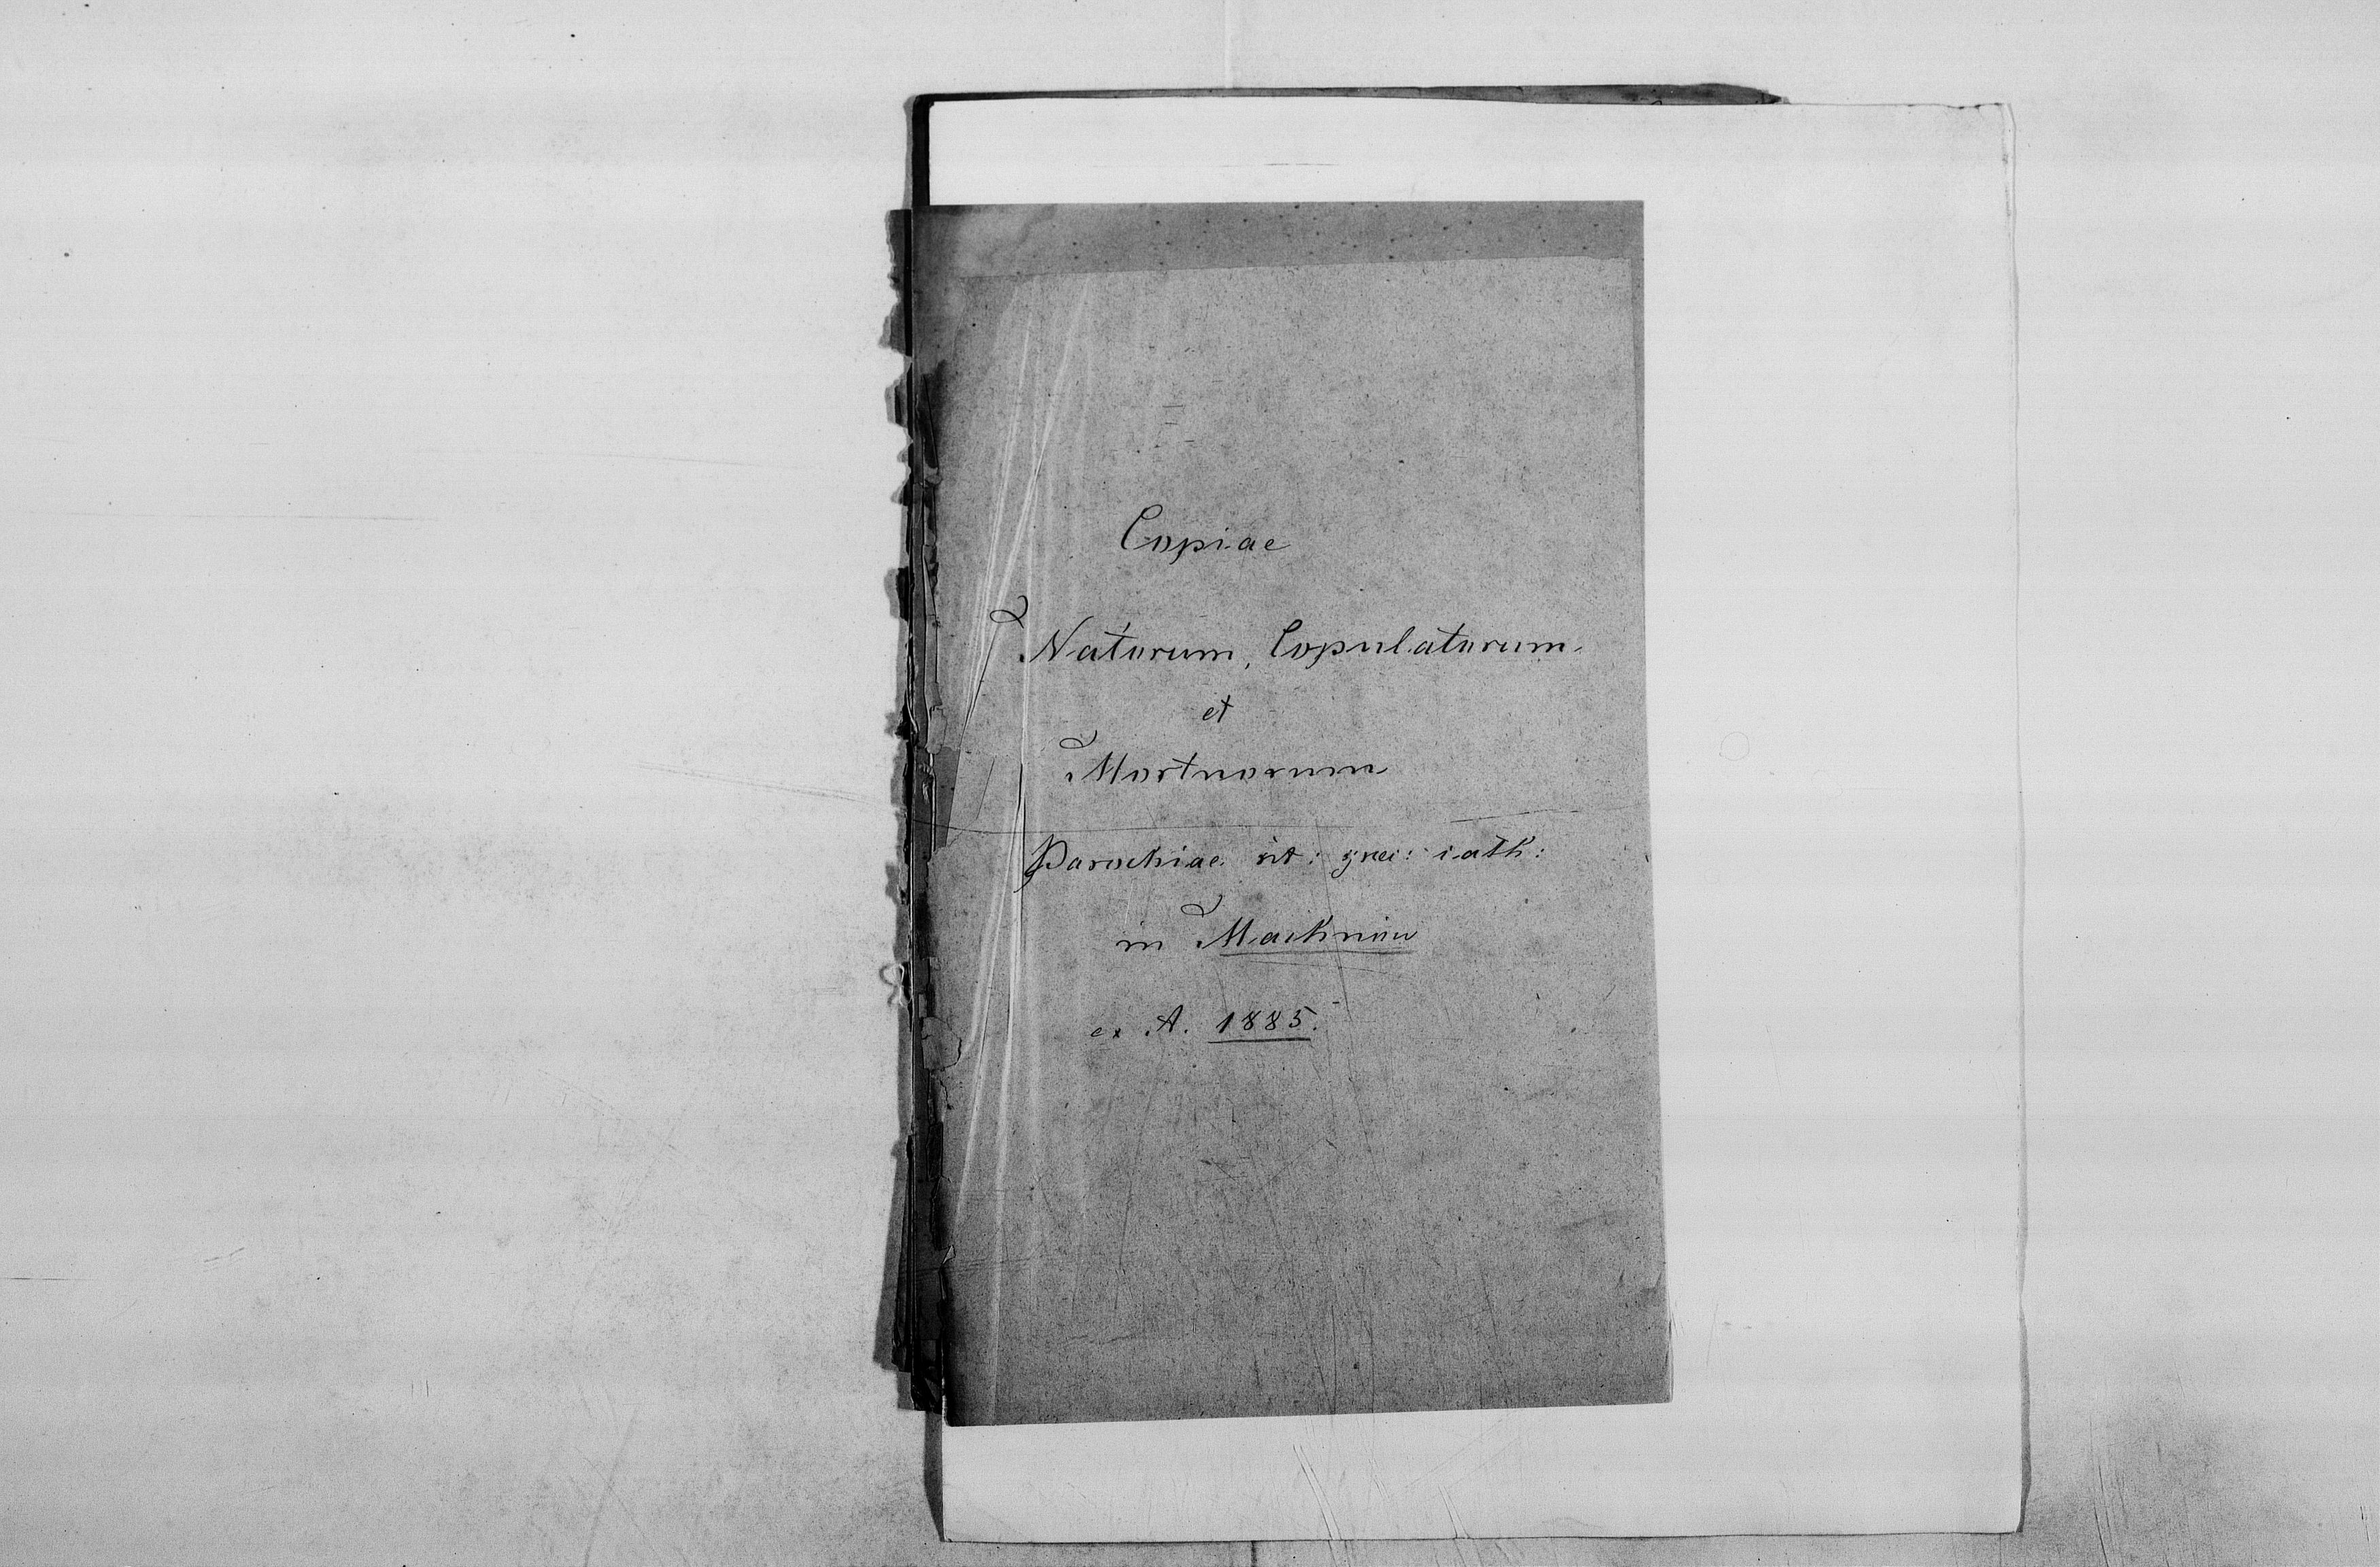 Copiae
Natorum, Copulatorum
et
Mortuorum
Parochiae rit: grec: cath:
in Machniw
ex A. 1885.